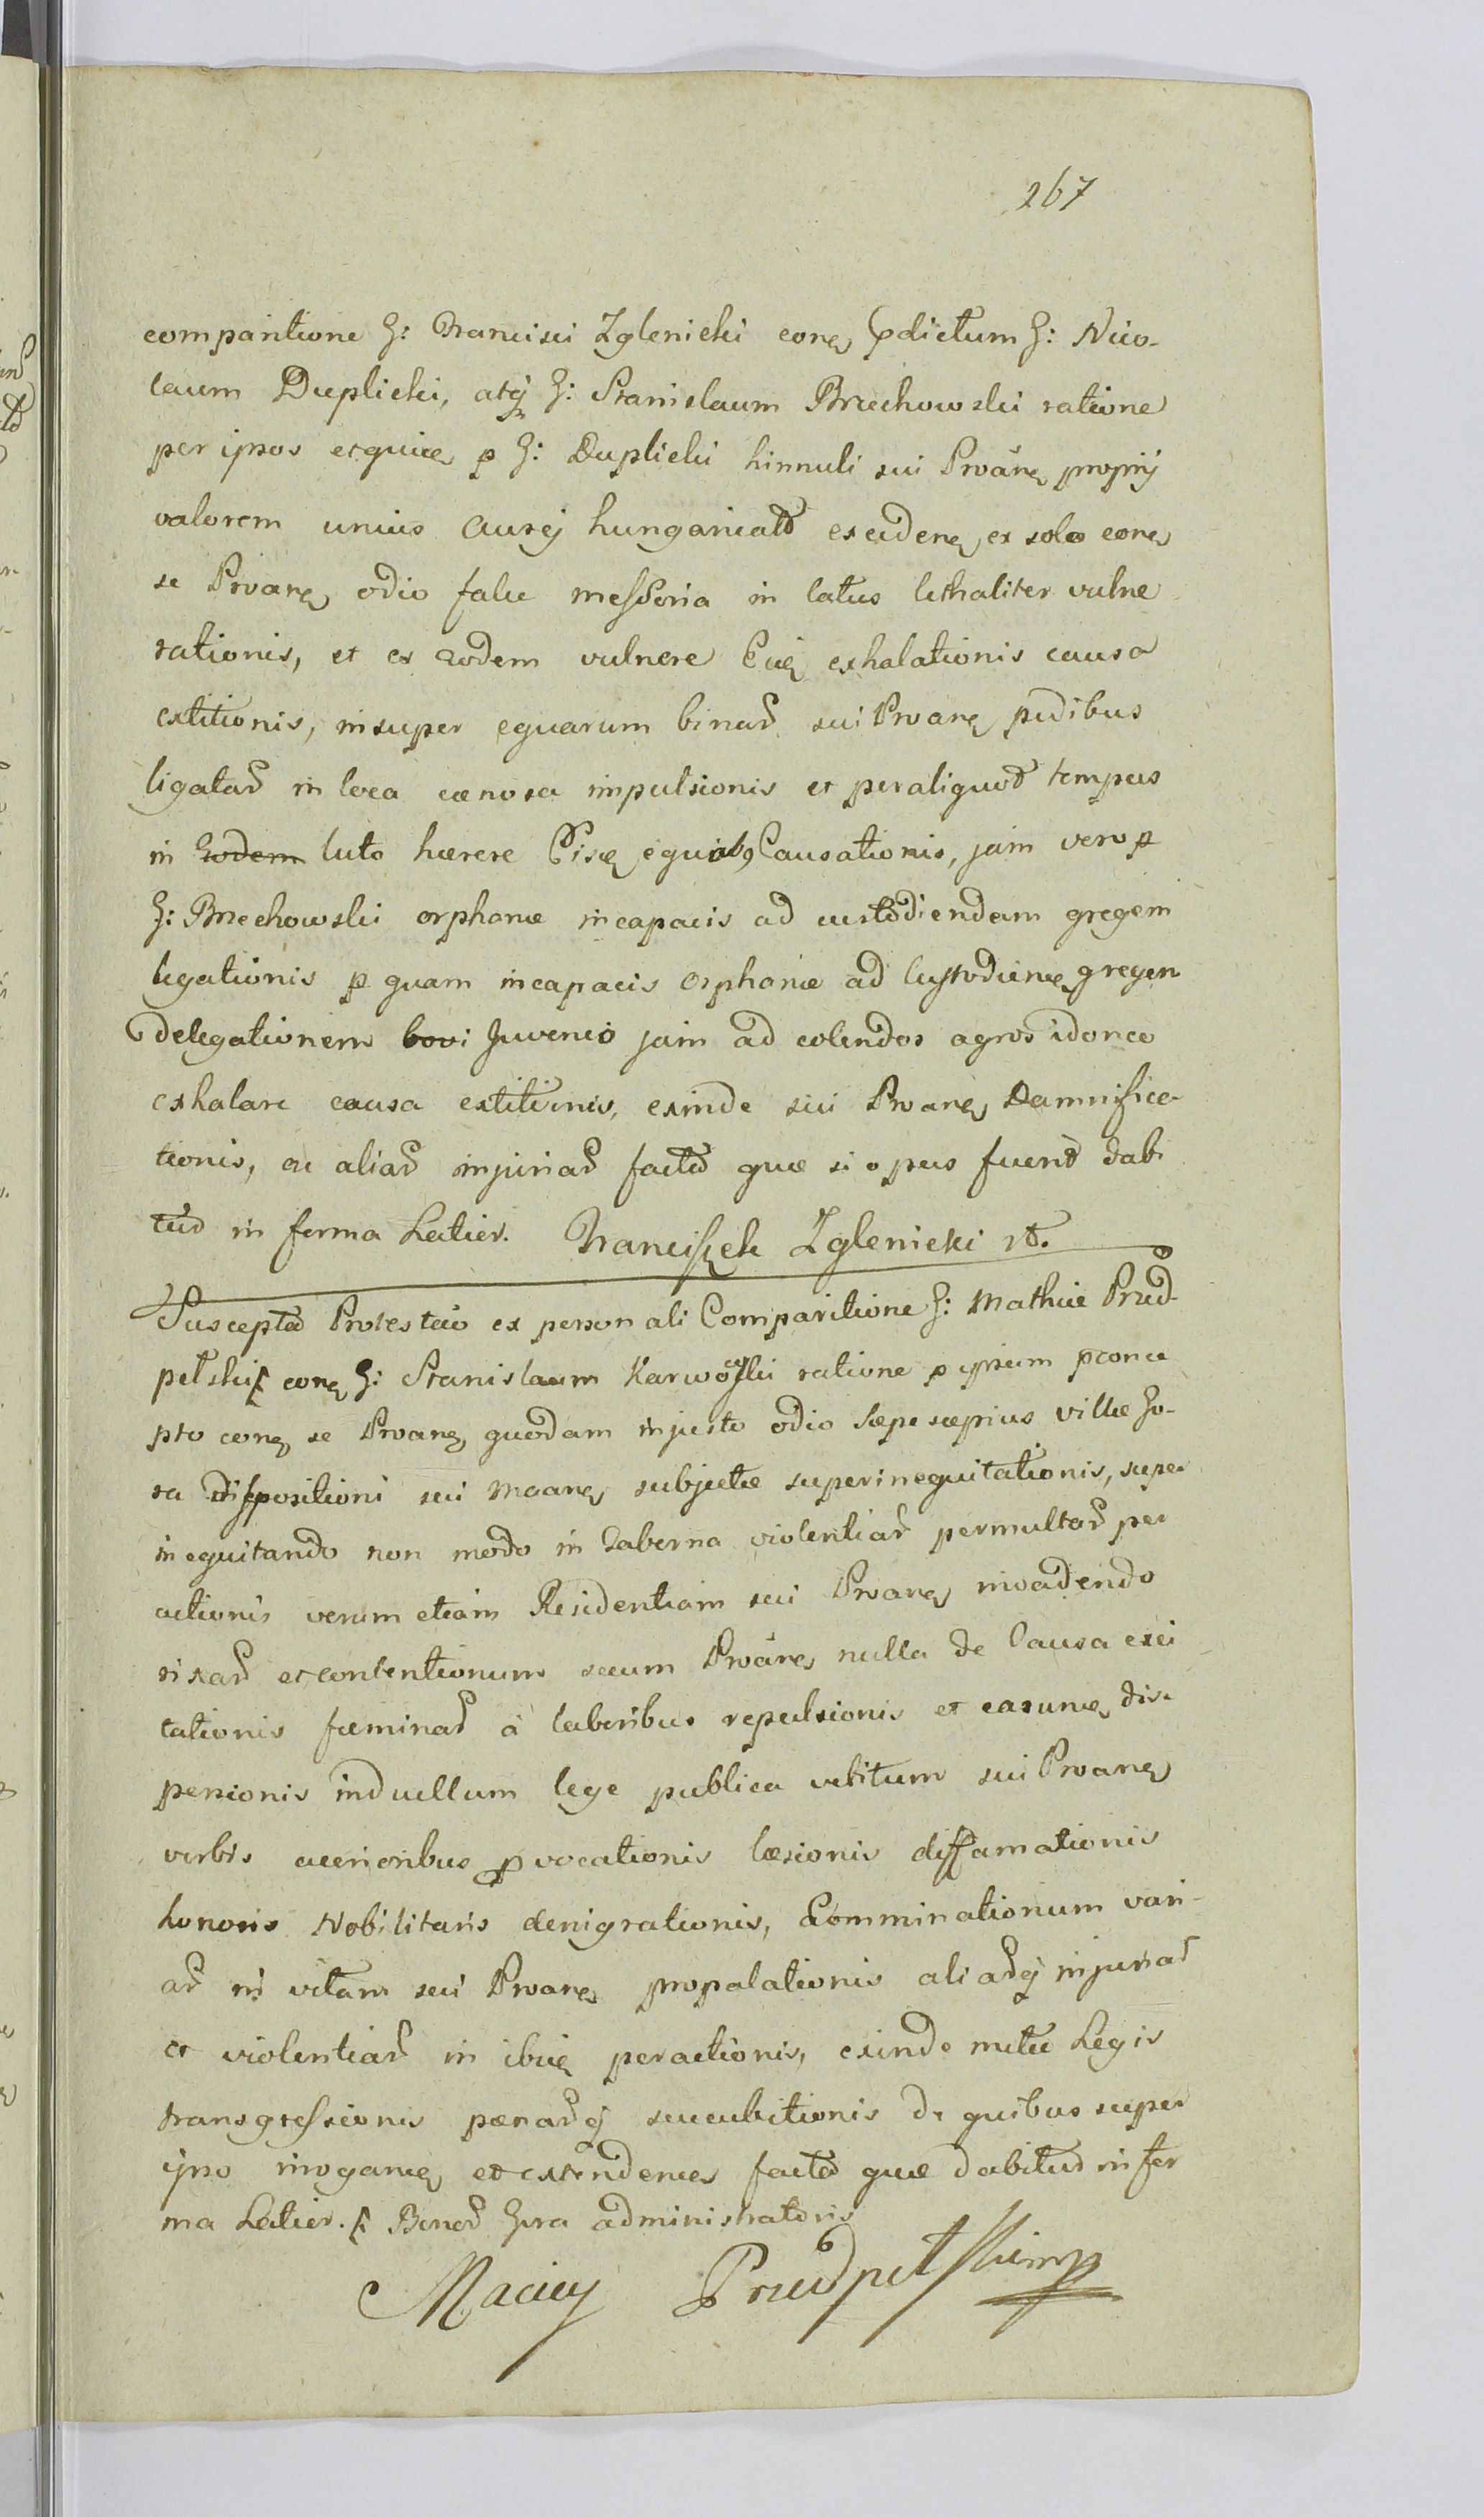 267
comparitione G: Francisci Zglenicki conq pdictum G: Nico-
laum Duplicki, atq G: Stanislaum Brzechowski ratione
per ipsos et quice p G: Duplicki hinnuli sui Proanq proprij
valorem unius Aurej hungaricald excedenq ex solo conq
se Proanq odio falce messoria in latus lethaliter vulne
rationis, et ex eodem vulnere Eiq exhalationis causa
extitionis, insuper equarum binar sui Proanq pedibus
ligatar in loca cœnosa impulsionis et per aliquod tempus
in eodem luto hærere equab9 Causationis, jam vero p
G: Brzechowski orphanæ incapacis ad custodiendam gregem
legationis p quam incapacis orphanæ ad Custodienq gregem
delegationem bovi Juvenco jam ad colendos agros idoneo
exhalare causa extitionis, exinde sui Proanq Damnifica-
tionis, ac aliar injuriar factæ quæ si opus fuerit dabi
tur in forma Latior. Franciszek Zglenicki
Suscepta Protestao ex personali Comparitione G: Mathiæ Przed-
petski conq G: Stanislaum Karwoski ratione p ipsum pconce
pto conq se Proanq quodam injusto odio sæpe sæpius villæ Go-
ra dispositioni sui Moanq subjectæ superinequitationis, super
inequitando non modo in taberna violentiar permultar per
actionis verum etiam Residentiam sui Proanq invadendo
rixar et contentionum secum Proanq nulla de Causa exci
tationis fæminar á laboribus repulsionis et earunq dis-
persionis in duellum lege publica vetitum sui Proanq
verbis acerioribus pvocationis læsionis diffamationis
honoris Nobilitaris denigrationis, Comminationum vari-
ar in vitam sui Proanq propalationis aliarq injuriar
et violentiar in ibiq peractionis, exinde metæ Legis
transgressionis pœnarq succubitionis de quibus super
ipso irroganq et extendenq factæ quæ dabitur in for
ma Latior. Bonor Gora administratoris
Maciey Przedpełski mp